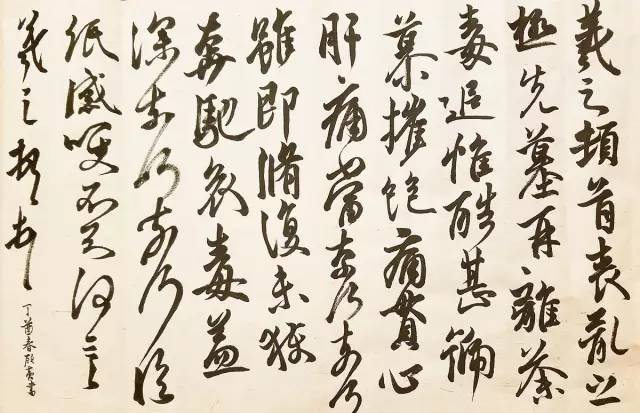 羲之頓首喪亂之
極先墓再離荼
毒追惟酷甚號
慕摧絕痛貫心
肝痛當奈何奈何
雖即脩復未獲
奔馳哀毒益
深奈何奈何臨
紙感哽不知何言
羲之頓首
丁酉春書